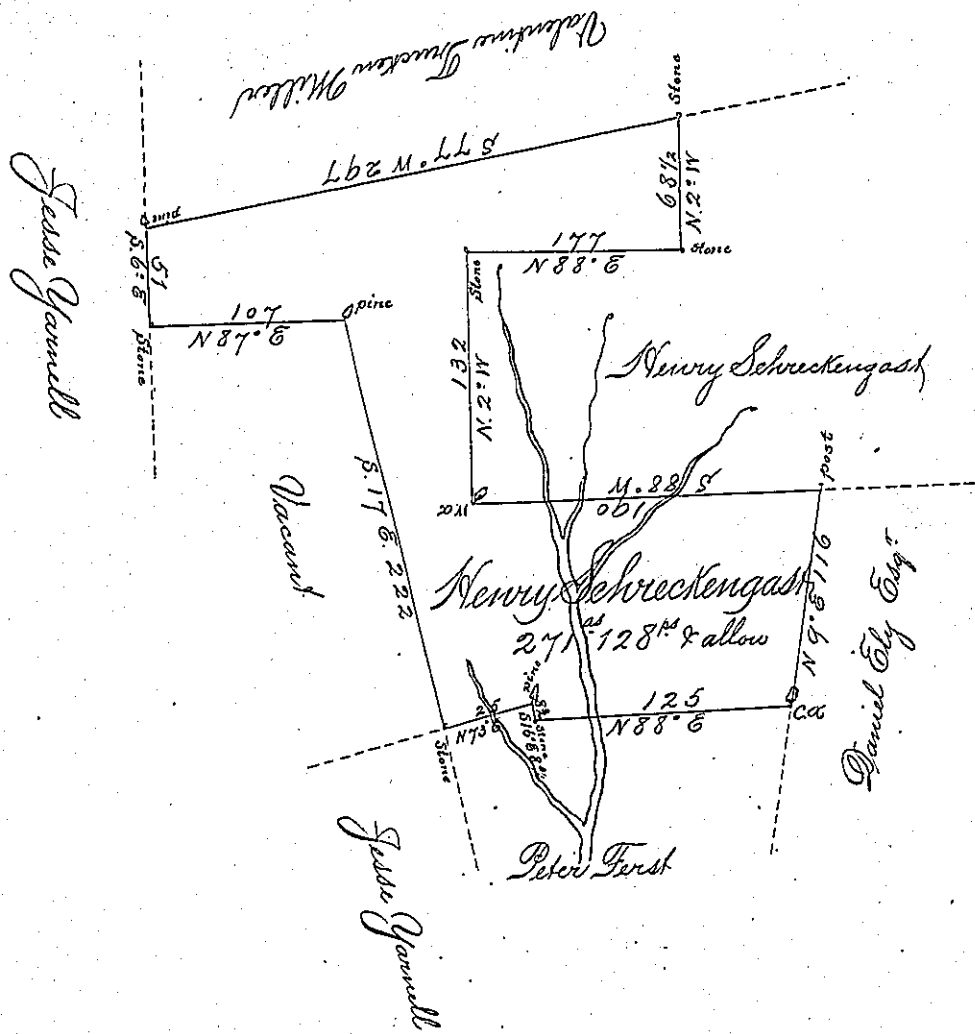 Valentine Trucken Miller
Stone
S 77° W 297
68½
N. 2° W
Jesse Yarnell
pine
51
S. 6° E
Stone
107
N 87° E
pine
Stone
177
N 88° E
Stone
132
N. 2° W
Henry Schreckengast
post
S 88° W
190
wo
Vacant
S. 17 E. 222
Henry Schreckengast
271 as. 128 ps & allow
N 9° E 116
Daniel Ely Esqr.
125
N 88° E
co
pine
Stone
N 73° E
Stone
Jesse Yarnell
Peter Ferst